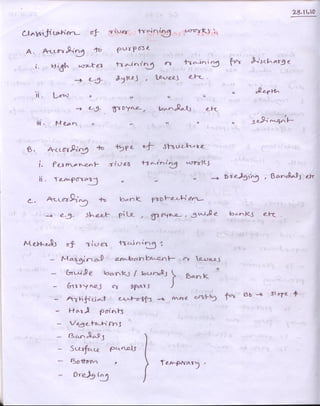 28.11.10
Classification of river training works :
A. According to purpose
i. High water training or training for discharge
→ e.g. dykes, levees etc.
ii. Low " " " depth
→ e.g. groyne, bandals, etc
iii. Mean " " " sediment
B. According to type of structure
i. Permanent river training works
ii. Temporary " → Dredging, Bandals etc
C. According to bank protection
→ e.g. sheet pile, groyne, guide banks etc.
Methods of river training :
- Marginal embankment or levees
- Guide banks / bunds } Bank
- Groynes or spurs
- Artificial cut-offs → more costly for slope ↑
- Hard points
- Vegetations
- Bandals
- Surface panels
- Bottom "
- Dredging
Temporary.